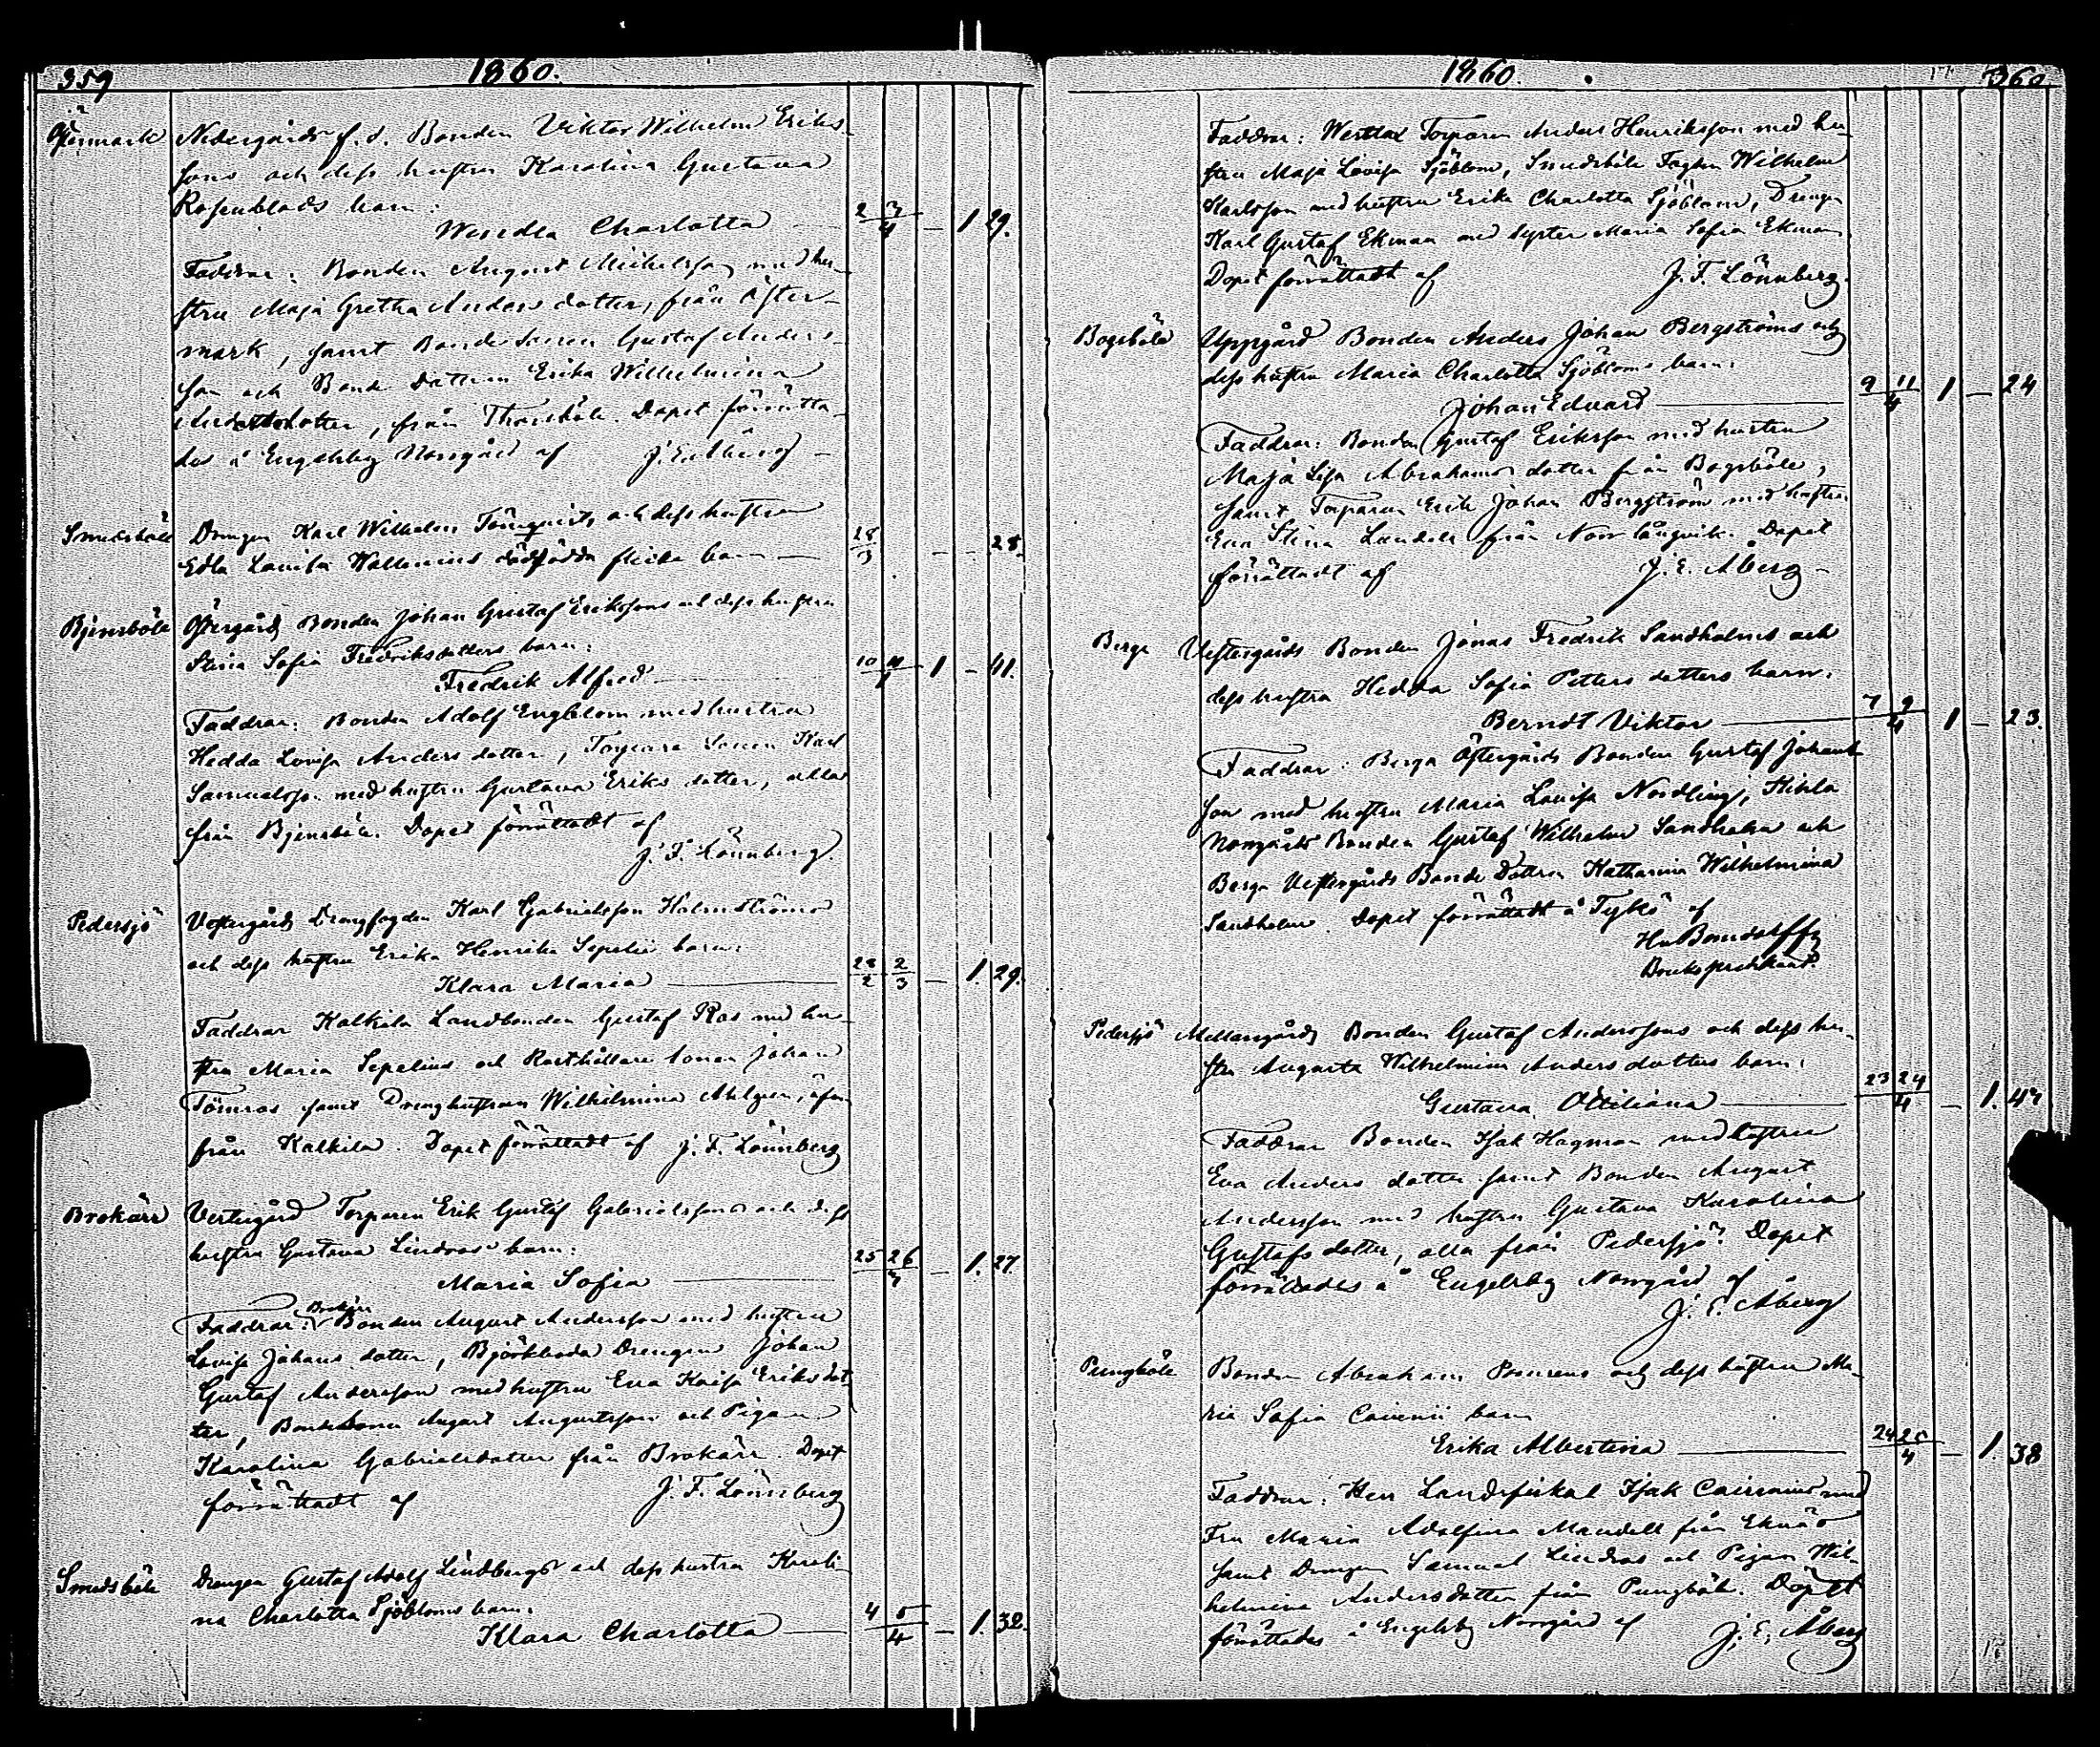 359
1860.
Östermark Nedergårds f. d. Bonden Viktor Wilhelm Eriks-
sons och dess hustru Karolina Gustava
Rosenblads barn:
Wendla Charlotta 2 3/4 — 1 29.
Faddrar: Bonden August Michelsson med hu-
stru Maja Gretha Anders dotter, från Öster-
mark, samt Bonde Sonen Gustaf Anders-
son och Bonde Dottren Erika Wilhelmina
Andersdotter, från Thorsböle. Dopet förrätta-
des å Engelsby Norrgård af J. E. Åberg
Smedsböle Drengen Karl Wilhelm Törnqvists och dess hustru
Edla Lovisa Wallenius dödfödda flicka barn — 28/3 — — 28.
Bjensböle Östergårds Bonden Johan Gustaf Erikssons och dess hustru
Stina Sofia Fredriksdotters barn:
Fredrik Alfred 10 11/4 1 — 41.
Faddrar: Bonden Adolf Engblom med hustru
Hedda Lovisa Anders dotter, Torpare Sonen Karl
Samuelsson med hustru Gustava Eriks dotter, alla
från Bjensböle. Dopet förrättadt af
J. F. Lönnberg.
Pedersjö Vestergårds Drengfogden Karl Gabrielsson Holmströms
och dess hustru Erika Henrika Sepelii barn:
Klara Maria 28/2 2/3 — 1. 29.
Faddrar Kalkila Landbonden Gustaf Ros med hu-
stru Maria Sepelius och Rusthållare Sonen Johan
Törnros samt Drenghustrun Wilhelmina Ahlgren, äfven
från Kalkila. Dopet förrättadt af J. F. Lönnberg
Brokärr Vestergård Torparen Erik Gustaf Gabrielssons och dess
hustru Gustava Lindroos barn:
Maria Sofia 25 26/3 — 1. 27.
Brokärr
Faddrar: Bonden August Andersson med hustru
Lovisa Johans dotter, Björkboda Drengen Johan
Gustaf Andersson med hustru Eva Kaisa Eriksdot-
ter, Bondesonen August Augustsson och Pigan
Karolina Gabrielsdotter från Brokärr. Dopet
förrättadt af J. F. Lönnberg
Smedsböle Drengen Gustaf Adolf Lindbergs och dess hustru Karoli-
na Charlotta Sjöbloms barn:
Klara Charlotta 4 5/4 — 1. 32.
1860. 360
Faddrar: Westlax Torparen Anders Henriksson med hu-
stru Maja Lovisa Sjöblom, Smedsböle Wilhelm
Karlsson med hustru Erika Charlotta Sjöblom, Drengen
Karl Gustaf Ekman med syster Maria Sofia Ekman
Dopet förrättadt af J. F. Lönnberg.
Bogsböle Uppgård Bonden Anders Johan Bergströms och
dess hustru Maria Charlotta Sjöbloms barn:
Johan Edvard 9 11/4 1 — 24
Faddrar: Bonden Gustaf Eriksson med hustru
Maja Lisa Abrahams dotter från Bogsböle,
samt Torparen Erik Johan Bergström med hustru
Eva Stina Lundell från Norrlångvik. Dopet
förrättadt af J. E. Åberg
Berga Vestergårds Bonden Jonas Fredrik Sandholms och
dess hustru Hedda Sofia Petters dotters barn:
Berndt Viktor 7 9/4 1 — 23.
Faddrar: Berga Östergårds Bonden Gustaf Johans-
son med hustru Maria Lovisa Nordling, Hihla
Norrgårds Bonden Gustaf Wilhelm Sandholm och
Berga Vestergårds Bonde Dottren Katharina Wilhelmina
Sandholm. Dopet förrättadt å Tykö af
Bruks predikant.
Pedersjö Mellangårds Bonden Gustaf Anderssons och dess hu-
stru Augusta Wilhelmina Anders dotters barn:
Gustava Ottiliana 23 24/4 — 1. 47
Faddrar Bonden Isak Hagman med hustru
Eva Anders dotter samt Bonden August
Andersson med hustru Gustava Karolina
Gustafs dotter, alla från Pedersjö. Dopet
förrättades å Engelsby Norrgård af
J. E. Åberg
Pungböle Bonden Abraham och dess hustru Ma-
ria Sofia barn
Erika Albertina 24 25/4 — 1. 38
Faddrar: Herr Landsfiskal Isak med
Fru Maria Adolfina Mandell från Eknäs
samt Drengen Samuel Lindros och Pigan Wil-
helmina Andersdotter från Pungböle. Dopet
förrättades å Engelsby Norrgård af J. E. Åberg